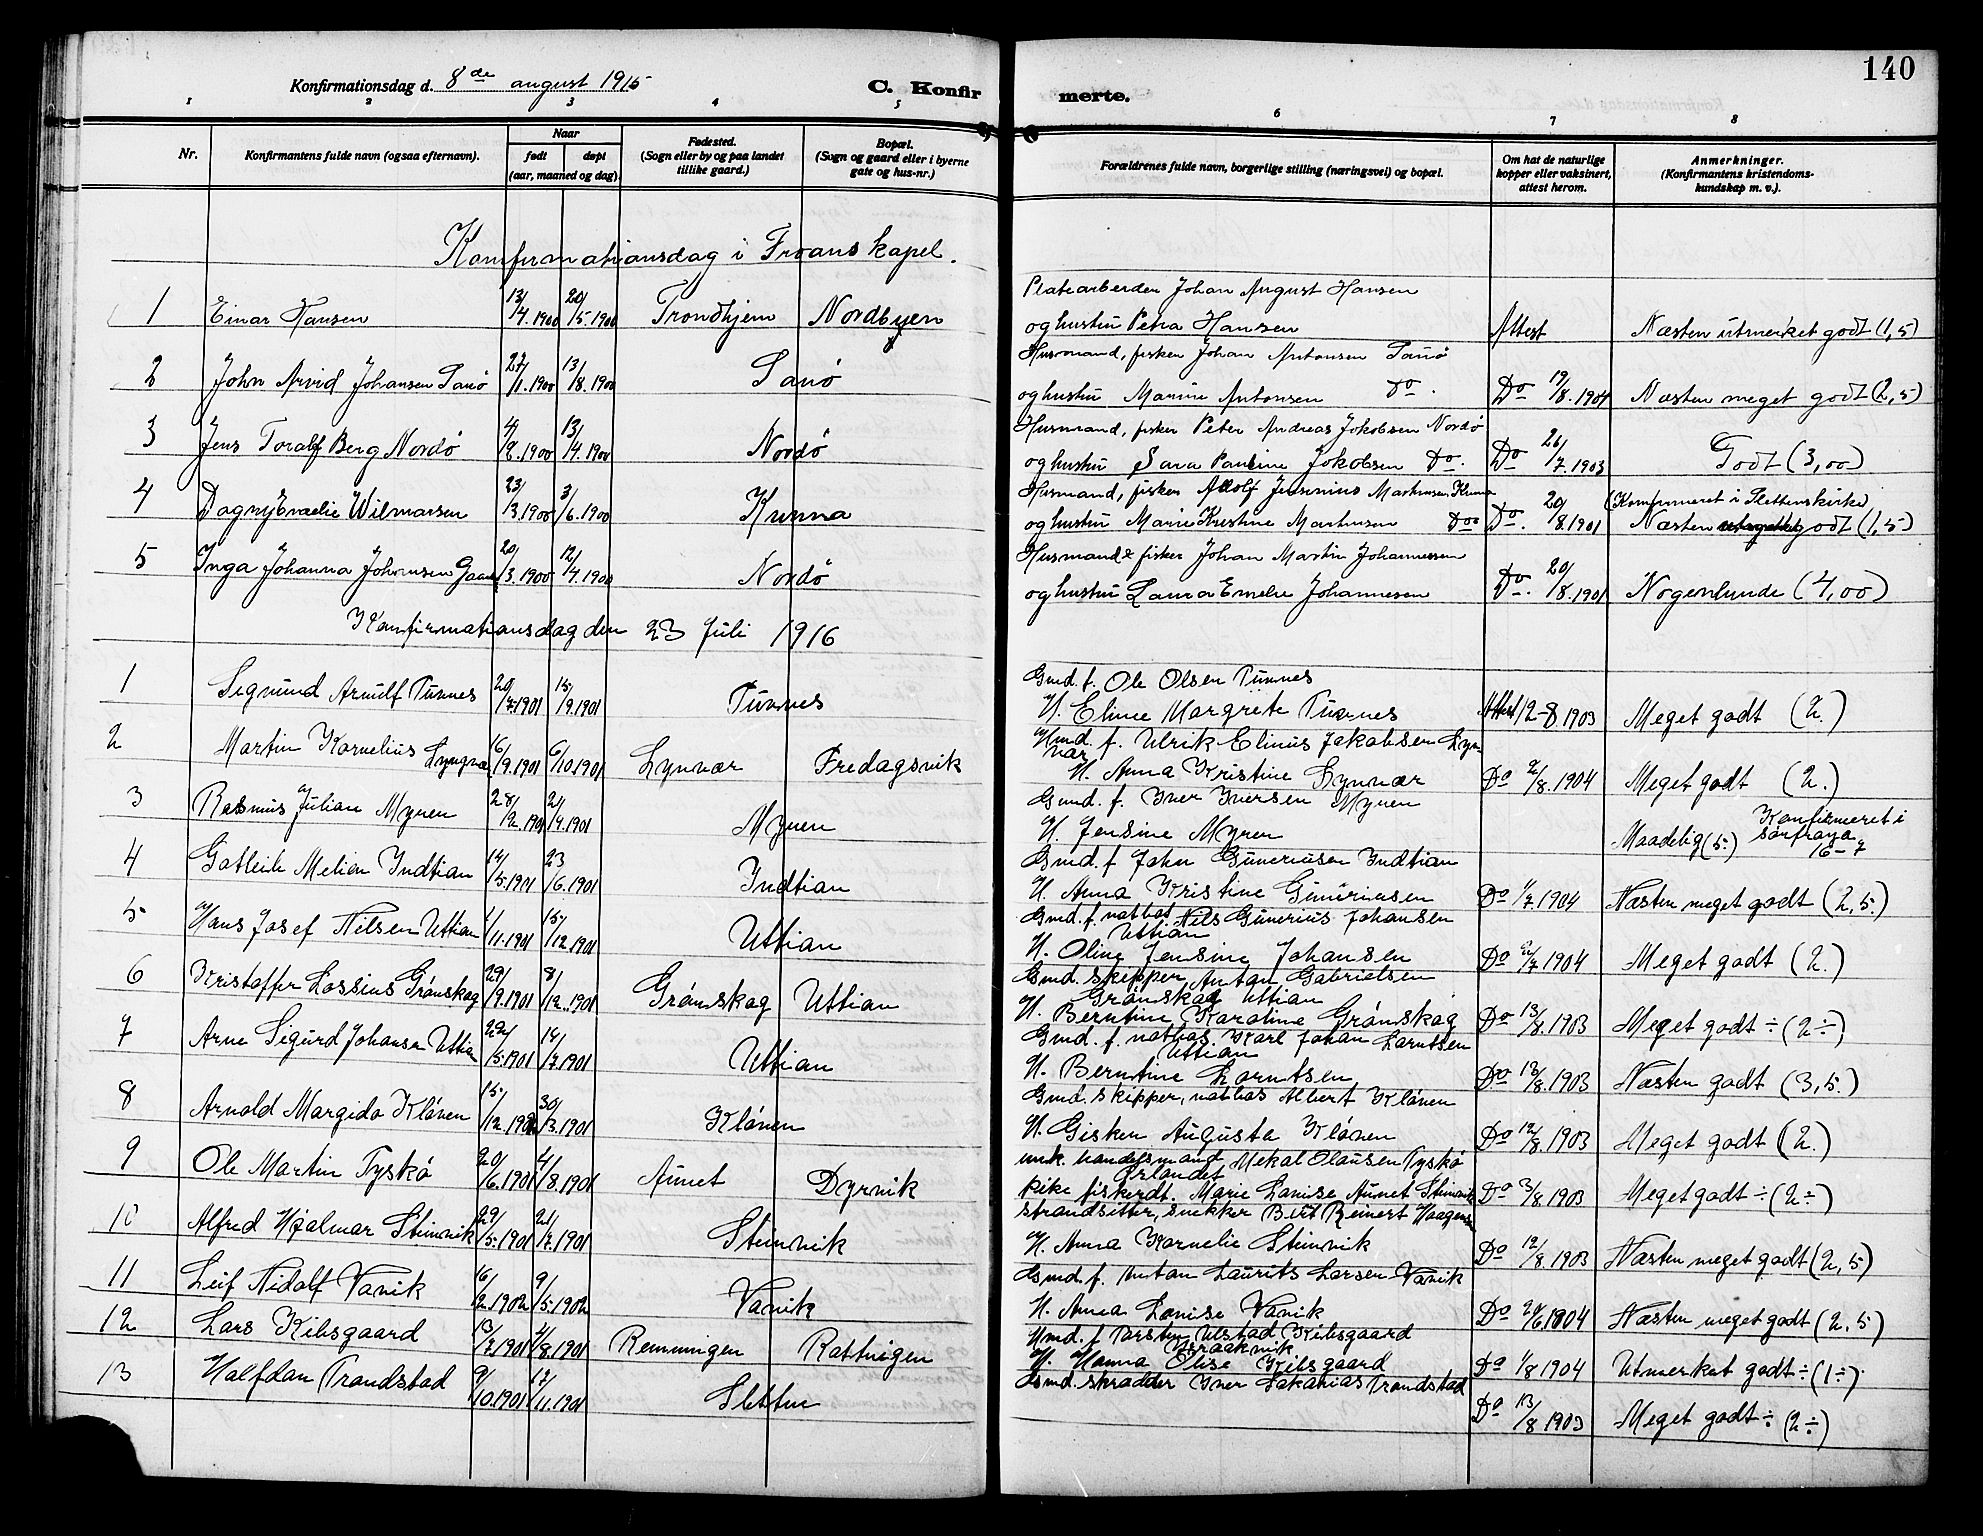 140
Konfirmationsdag d. 8de august 1915
C. Konfirmerte.
1 2 3 4 5 6 7 8
Nr. Konfirmantens fulde navn (ogsaa efternavn). Naar født døpt (aar, maaned og dag) Fødested. (Sogn eller by og paa landet tillike gaard.) Bopæl. (Sogn og gaard eller i byerne gate og hus-nr.) Forældrenes fulde navn, borgerlige stilling (næringsvei) og bopæl. Om hat de naturlige kopper eller vaksinert, attest herom. Anmerkninger. (Konfirmantens kristendoms-kundskap m. v.).
Konfirmationsdag i Froans kapel.
1 Einar Hansen 13/4.1900 20/5.1900 Trondhjem Nordbyen Platearbeider Johan August Hansen
og hustru Petra Hansen Attest Næsten utmerket godt (1,5)
2 John Arvid Johansen Sanø 27/11.1900 13/8.1900 Sanø Husmand, fisker Johan Antonsen Sanø
og hustru Marine Antonsen Do. Do 19/8.1904 Næsten meget godt (2,5)
3 Jens Toralf Berg Nordø 4/2.1900 13/4.1900 Nordø Husmand, fisker Peter Andreas Jakobsen Nordø
og hustru Sara Pauline Jakobsen Do. Do 26/7.1903 Godt (3,00)
4 Dagny Emelie Wilmarsen 23/3.1900 3/6.1900 Kunna Husmand, fisker Adolf Jensenius Martinusen Kunna
og hustru Marie Kristine Martinusen Do Do. 20/8.1901 (Konfirmeret i Slettenskirke)
Næsten godt (1,5)
5 Inga Johanna Johansen 20/3.1900 12/4.1900 Nordø Husmand & fisker Johan Martin Johannessen
og hustru Laura Emelie Johannesen Do. 20/8.1901 Nogenlunde (4,00)
Konfirmationsdag den 23 Juli 1916
1 Sigmund Arnulf Tunnes 20/7.1901 15/9.1901 Tunnes Gmd. f. Ole Olsen Tunnes
H. Eline Margrete Tunnes Attest 12-8.1903 Meget godt (2.)
2 Martin Kornelius Lyngvær 16/9.1901 6/10.1901 Lynvær Fredagsvik Hmd. f. Ulrik Elinus Jakobsen Lyn
vær
H. Anna Kristine Lynvær Do 2/8.1904 Meget godt (2.)
3 Rasmus Julian Myren 28/2.1901 2/4.1901 Myren Gmd. f. Iver Iversen Myren
H. Jensine Myren Maadelig (5) Konfirmeret i
Sørfrøya
16-7
4 Gotleib Melian Indtian 14/5.1901 23/6.1901 Indtian Gmd. f John Gunerinsen Indtian
H. Anna Kristine Gunerinsen Do 1/7.1904 Næsten meget godt (2,5.)
5 Hans Josef Nilsen Uttian 1/11.1901 15/12.1901 Uttian Gmd. f. Nils Gunerius Johansen
Uttian
H. Oline Jensine Johansen Do 2/7 1904 Meget godt (2.)
6 Kristoffer Lossius Grønskag 29/9.1901 8/12.1901 Grønskag Uttian Gmd. skipper Anton Gabrielsen
Grønskag Uttian
H. Berntine Karoline Grønskag Do 13/8.1903 Meget godt ÷ (2÷)
7 Arne Sigurd Johansen Uttian 22/5.1901 14/7.1901 Uttian Gmd. f. Karl Johan Larntsen
Uttian
H. Berntine Larntsen Do 13/8.1903 Næsten godt (3,5.)
8 Arnold Margido Kløven 15/12.190 30/3.1901 Kløven Gmd. skipper, Albert Kløven
H. Gisken Augusta Kløven Do 12/8.1903 Meget godt (2.)
9 Ole Martin Tyskø 20/6.1901 4/8.1901 Aunet Dyrvik unk. handelsmand Mekal Olausen Tyskø
Ørlandet
pike fiskerdt. Marie Lovise Aunet Steinvik Do 3/8.1903 Meget godt ÷ (2÷)
10 Alfred Hjalmar Steinvik 29/5.1901 21/7.1901 Steinvik Strandsitter, snekker Reinert Haagens
H. Anna Kornelie Steinvik Do 12/8.1903 Næsten meget godt (2,5)
11 Leif Nidolf Vavik 16/2.1902 9/5.1902 Vavik Gmd. f. Anton Laurits Larsen Vavik
H. Anna Lovise Vavik Do 20/6.1904 Næsten meget godt (2,5)
12 Lars Kibsgaard 13/7.1901 4/8.1901 Remmingen Rathugen Hmd. f Torsten Ulstad Kibsgaard
H. Hanna Elise Kibsgaard Do 1/8 1904 Utmerket godt ÷ (1÷).
13 Halfdan Trandstad 9/10.1901 17/11.1901 Sletten Gmd. skrædder Iver Sakarias Trandstad
Do 13/8 1903 Meget godt ÷ (2÷)